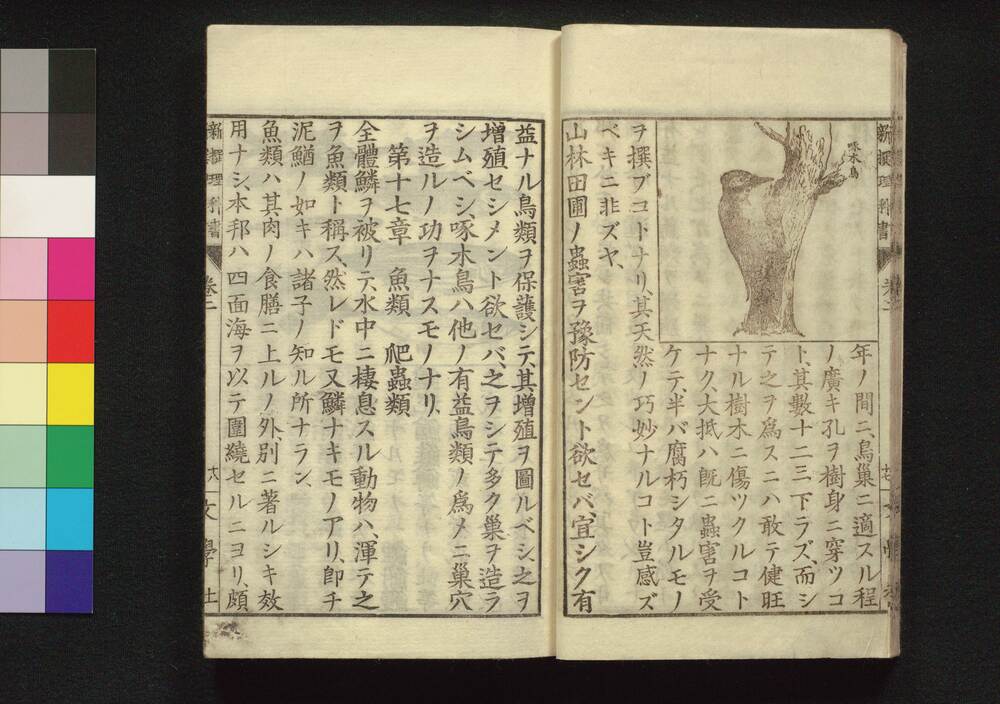 新撰理科書
啄木鳥
年ノ間ニ、鳥巢ニ適スル程
ノ、廣キ孔ヲ樹身ニ穿ツコ
ト、其數十二三ニ下ラズ、而シ
テ之ヲ爲スニハ敢テ健旺
ナル樹木ニ傷ツクルコト
ナク、大抵ハ旣ニ蟲害ヲ受
ケテ、半バ腐朽シタルモノ
ヲ撰ブコトナリ、其天然ノ巧妙ナルコト豈感ズ
ベキニ非ズヤ、
山林田圃ノ蟲害ヲ豫防セント欲セバ、宜シク有
益ナル鳥類ヲ保護シテ、其增殖ヲ圖ルベシ、之ヲ
增殖セシメント欲セバ、之ヲシテ多ク巢ヲ造ラ
シムベシ、啄木鳥ハ他ノ有益鳥類ノ爲メニ巢穴
ヲ造ルノ功ヲナスモノナリ、
第十七章 魚類 爬蟲類
全體鱗ヲ被リテ、水中ニ棲息スル動物ハ、渾テ之
ヲ魚類ト稱ス、然レドモ又鱗ナキモノアリ、卽チ
泥鰌ノ如キハ諸子ノ知ル所ナラン、
魚類ハ其肉ノ食膳ニ上ルノ外、別ニ著ルシキ效
用ナシ、本邦ハ四面海ヲ以テ圍繞セルニヨリ、頗
新撰理科書 卷二 十八 文學社